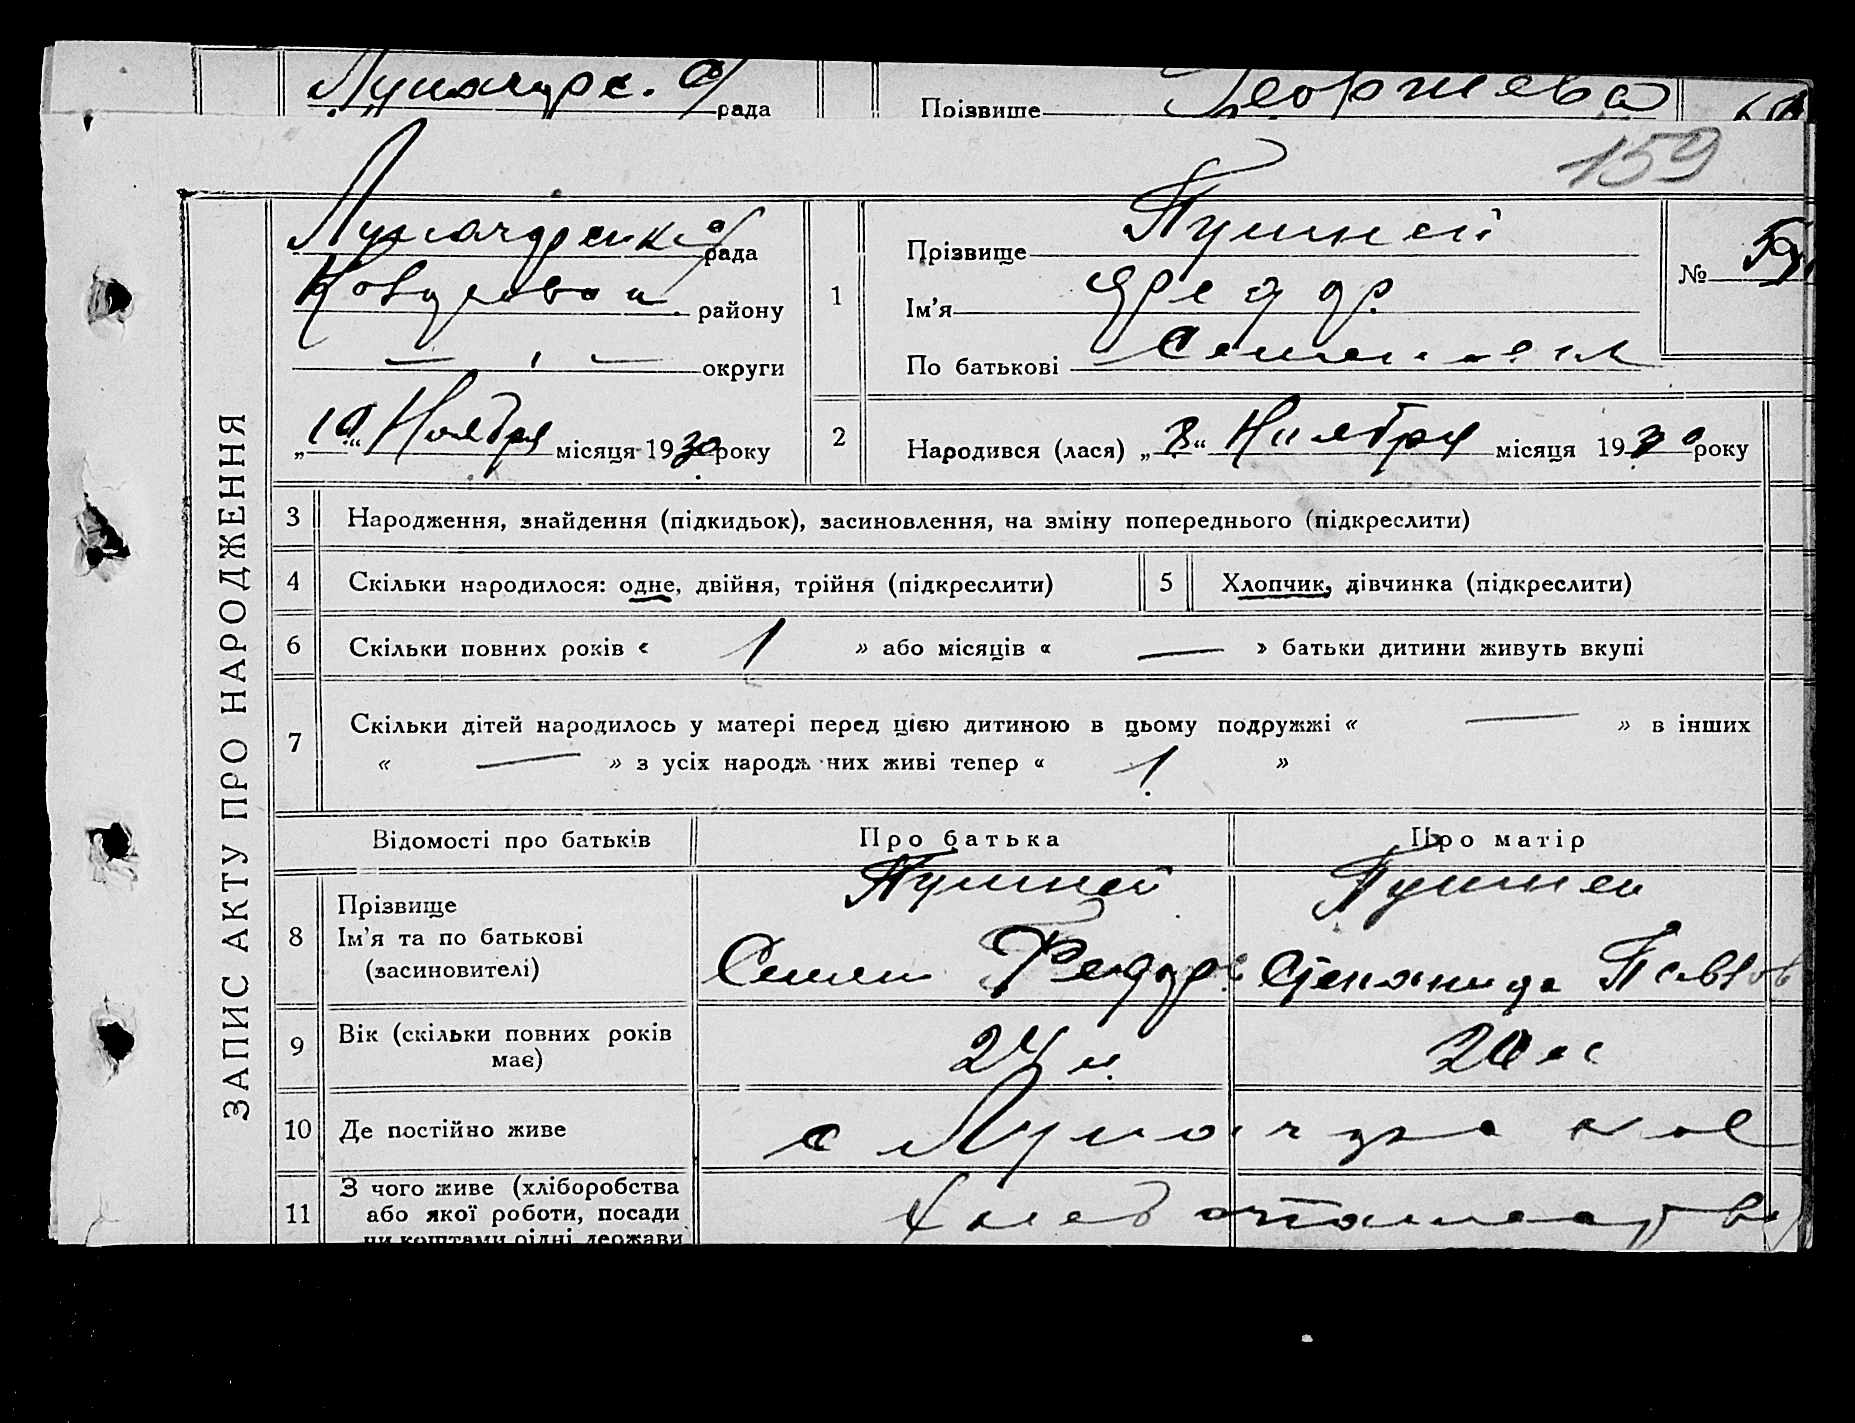 рада
Прізвище Георгиева
159
ЗАПИС АКТУ ПРО НАРОДЖЕННЯ
рада
району
— " — округи
„10“ Ноября місяця 1930 року
1
Прізвище Пушней
Ім'я Федор
По батькові
№
2
Народився (лася) „8“ Ноября місяця 1930 року
3 Народження, знайдення (підкидьок), засиновлення, на зміну попереднього (підкреслити)
4 Скільки народилося: одне, двійня, трійня (підкреслити)
5 Хлопчик, дівчинка (підкреслити)
6 Скільки повних років « 1 » або місяців « — » батьки дитини живуть вкупі
7 Скільки дітей народилось у матері перед цією дитиною в цьому подружжі « — » в інших
« — » з усіх народж них живі тепер « 1 »
Відомості про батьків
Про батька
Про матір
8 Прізвище
Ім'я та по батькові
(засиновителі)
Пушней
Семен Федор.
Пушней
Степанида Павлов
9 Вік (скільки повних років
має)
24 л.
20 л
10 Де постійно живе
с
11 З чого живе (хліборобства
або якої роботи, посади
чи коштами рідні, держави